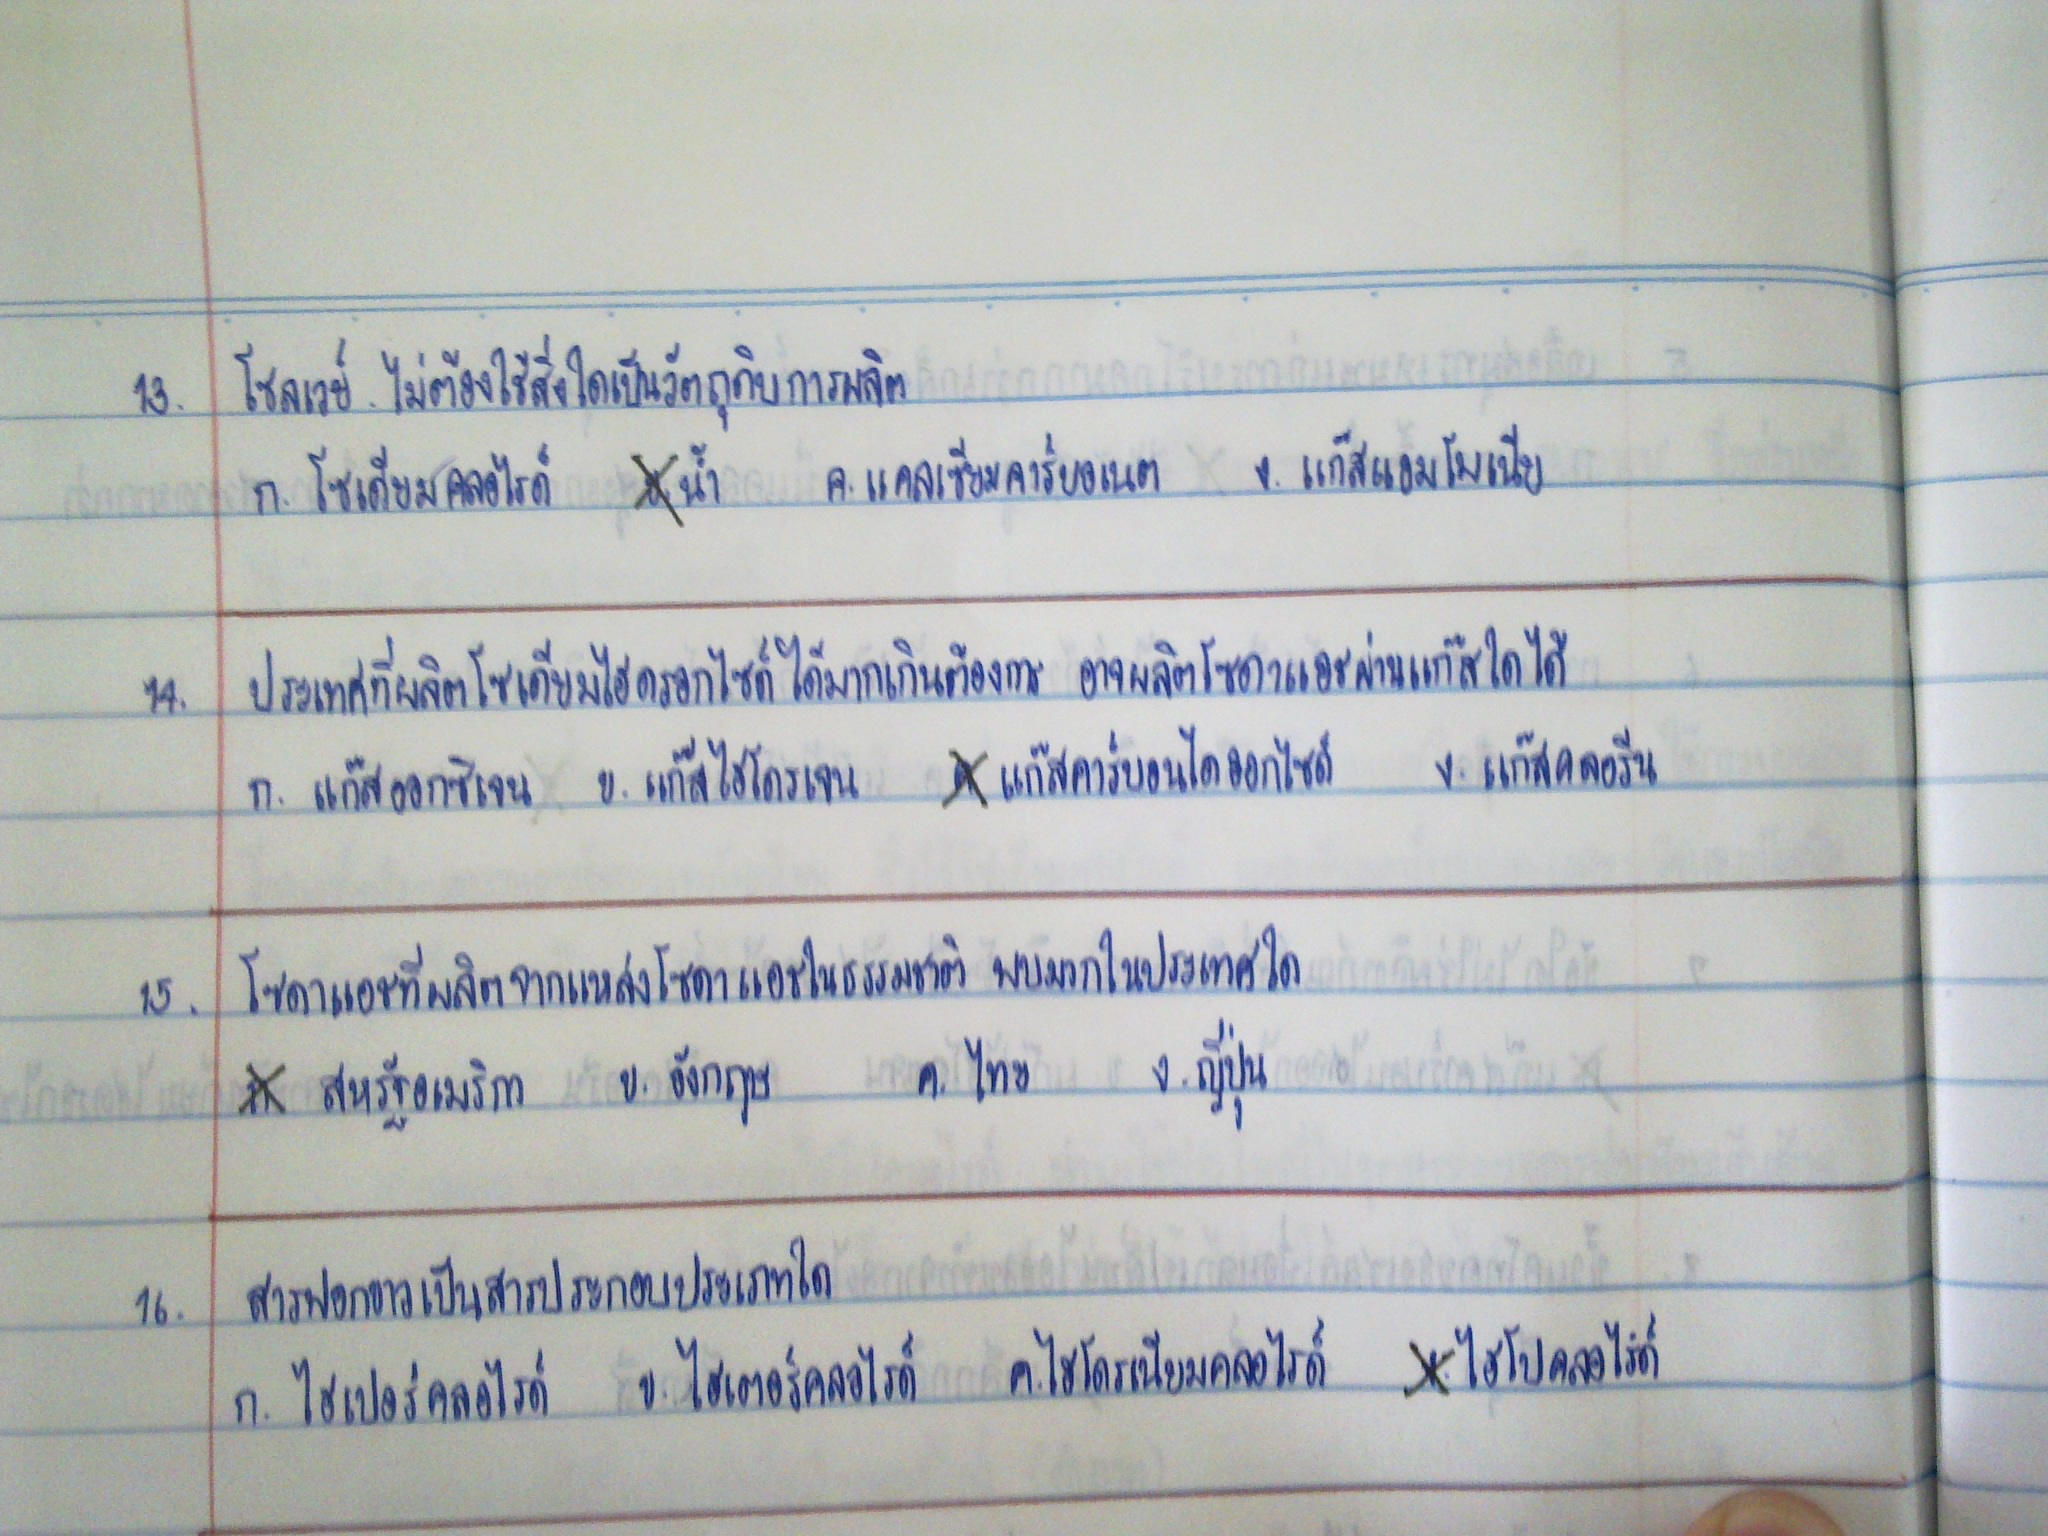 13. โซลเวย์ ไม่ต้องใช้สิ่งใดเป็นวัตถุดิบการผลิต
ก. โซเดียมคลอไรด์ ข น้ำ ค. แคลเซียมคาร์บอเนต ง. แก๊สแอมโมเนีย
14. ประเทศที่ผลิตโซเดียมไฮดรอกไซด์ได้มากเกินต้องการ อาจผลิตโซดาแอชผ่านแก๊สใดได้
ก. แก๊สออกซิเจน ข. แก๊สไฮโดรเจน ค แก๊สคาร์บอนไดออกไซด์ ง. แก๊สคลอรีน
15. โซดาแอชที่ผลิตจากแหล่งโซดาแอชในธรรมชาติ พบมากในประเทศใด
ก สหรัฐอเมริกา ข. อังกฤษ ค. ไทย ง. ญี่ปุ่น
16. สารฟอกขาวเป็นสารประกอบประเภทใด
ก. ไฮเปอร์คลอไรด์ ข. ไฮเตอร์คลอไรด์ ค. ไฮโดรเนียมคลอไรด์ ง. ไฮโปคลอไรด์